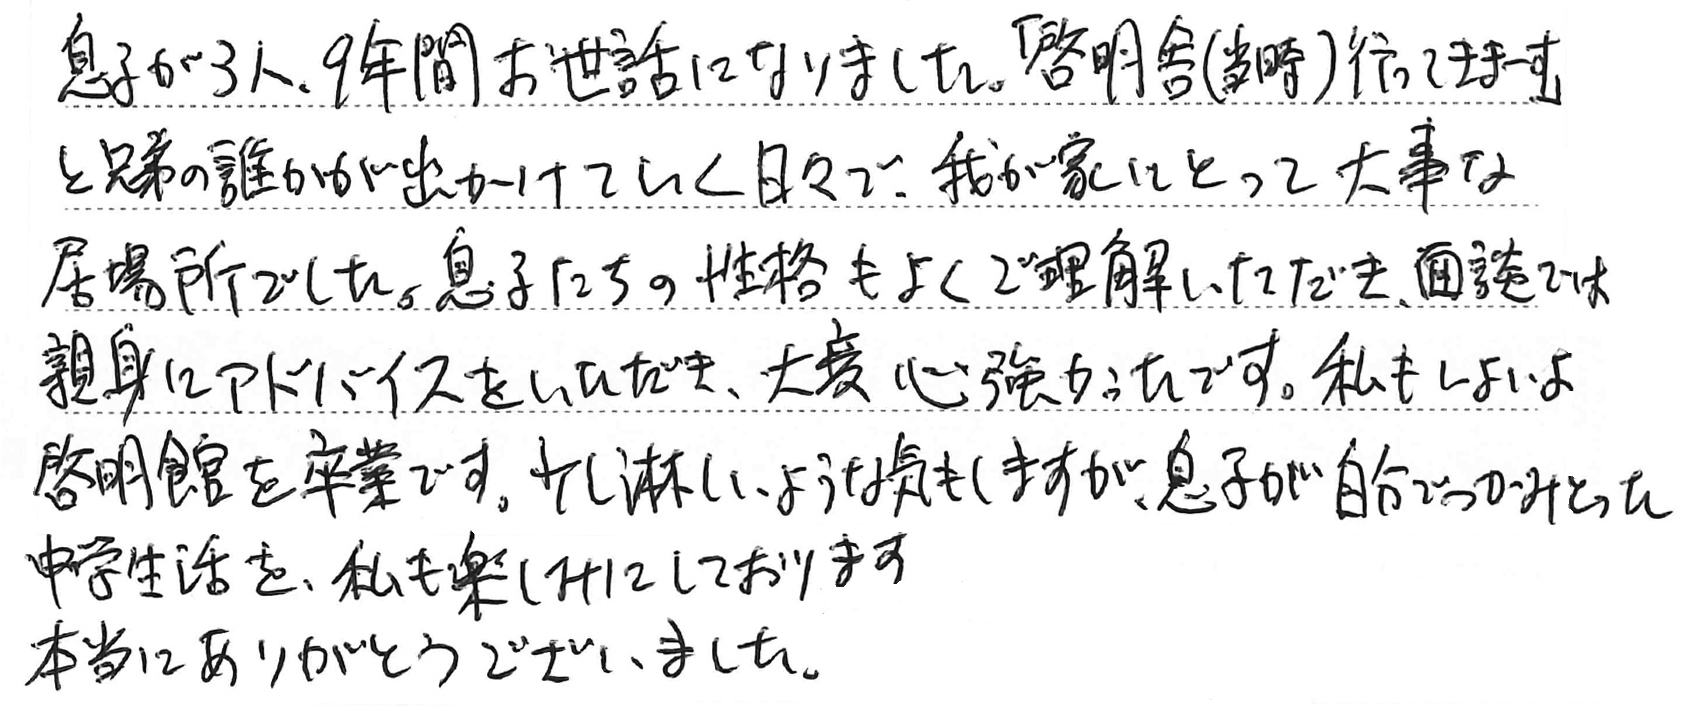 息子が3人、9年間お世話になりました。「啓明舎(当時)行ってきまーす」
と兄弟の誰かが出かけていく日々で、我が家にとって大事な
居場所でした。息子たちの性格もよくご理解いただき、面談では
親身にアドバイスをいただき、大変心強かったです。私もいよいよ
啓明館を卒業です。少し淋しいような気もしますが、息子が自分でつかみとった
中学生活を、私も楽しみにしております
本当にありがとうございました。